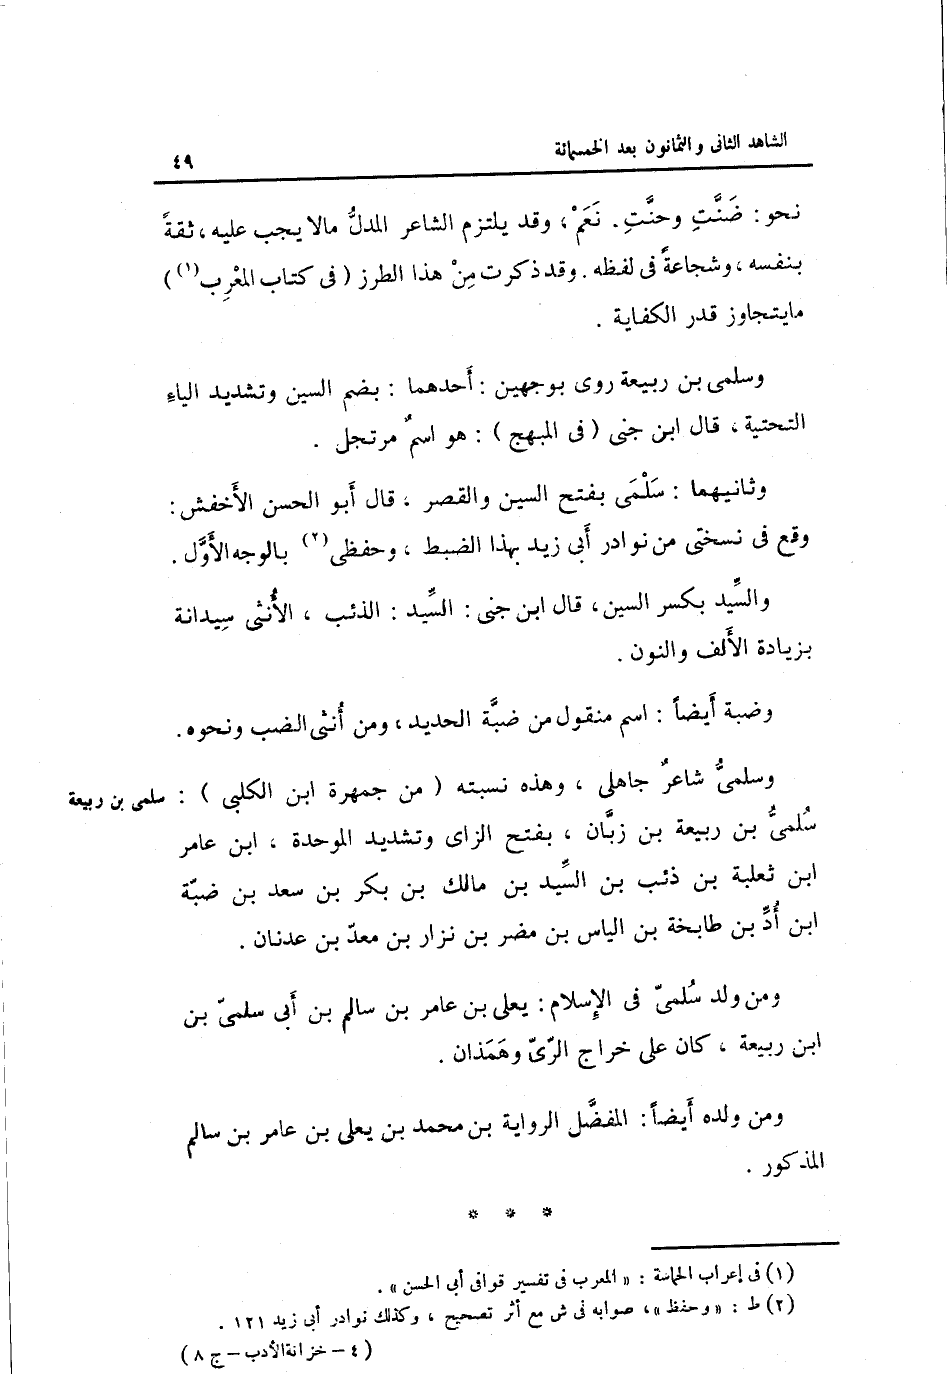 الشاهد الثانى والثمانون بعد الخمسمائة
٤٩
نحو : ضَنَّتِ وحنَّتِ . نَعَمْ ، وقد يلتزم الشاعر المدلُّ مالا يجب عليه ، ثقةً
بنفسه ، وشجاعةً فى لفظه . وقد ذكرت مِنْ هذا الطرز ( فى كتاب المغْرِب(١) )
مايتجاوز قدر الكفاية .
وسلمى بن ربيعة روى بوجهين : أَحدهما : بضم السين وتشديد الياء
التحتية ، قال ابن جنى ( فى المبهج ) : هو اسمٌ مرتجل .
وثانيهما : سَلْمَى بفتح السين والقصر ، قال أَبو الحسن الأَخفش :
وقع فى نسختى من نوادر أَبى زيد بهذا الضبط ، وحفظى(٢) بالوجه الأَوَّل .
والسِّيد بكسر السين ، قال ابن جنى : السِّيد : الذئب ، الأُنثى سِيدانة
بزيادة الأَلف والنون .
وضبة أَيضاً : اسم منقول من ضبَّة الحديد ، ومن أُنثى الضب ونحوه .
وسلمىُّ شاعرٌ جاهلى ، وهذه نسبته ( من جمهرة ابن الكلبى ) :
سلمى بن ربيعة
سُلمىُّ بن ربيعة بن زبَّان ، بفتح الزاى وتشديد الموحدة ، ابن عامر
ابن ثعلبة بن ذئب بن السِّيد بن مالك بن بكر بن سعد بن ضبّة
ابن أُدِّ بن طابخة بن الياس بن مضر بن نزار بن معدّ بن عدنان .
ومن ولد سُلمىّ فى الإِسلام : يعلى بن عامر بن سالم بن أَبى سلمىّ بن
ابن ربيعة ، كان على خراج الرّىّ وهَمَذان .
ومن ولده أَيضاً : المفضَّل الرواية بن محمد بن يعلى بن عامر بن سالم
المذكور .
* * *
(١) فى إعراب الحماسة : « المعرب فى تفسير قوافى أبى الحسن » .
(٢) ط : « وحفظ » ، صوابه فى ش مع أثر تصحيح ، وكذلك نوادر أبى زيد ١٢١ .
( ٤ – خزانة الأدب – ج ٨ )